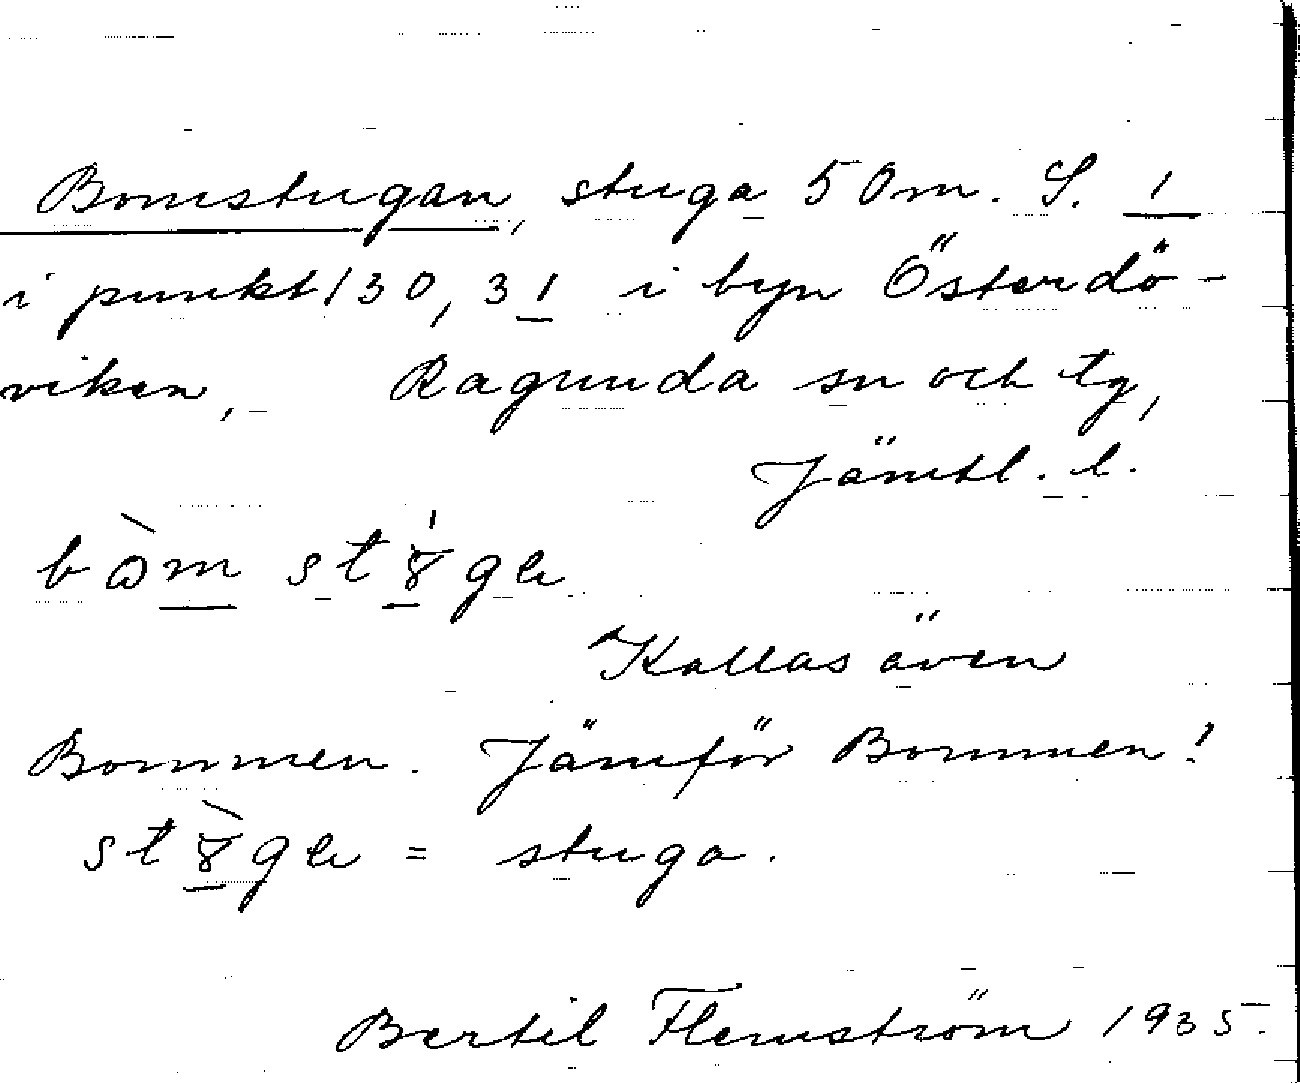 Bomstugan, stuga 50m. S. 1
i punkt 130, 31 i byn Österdö-
viken, Ragunda sn och tg,
Jämtl. l.
Kallas även
Bommen. Jämför Bommen!
= stuga.
Bertil Flemström 1935.